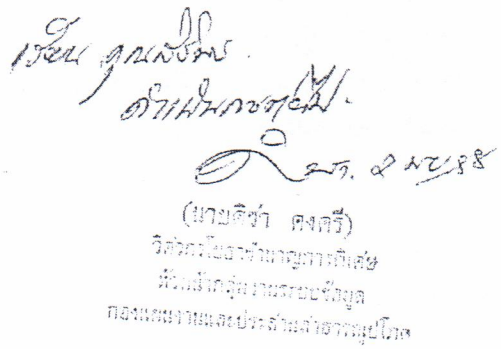 เรียน คุณ
ดำเนินการต่อไป.
(นายศิวา คงตรี)
วิศวกรโยธาชำนาญการพิเศษ
หัวหน้ากลุ่มงานระบบข้อมูล
กองแผนงานและประสานสาธารณูปโภค